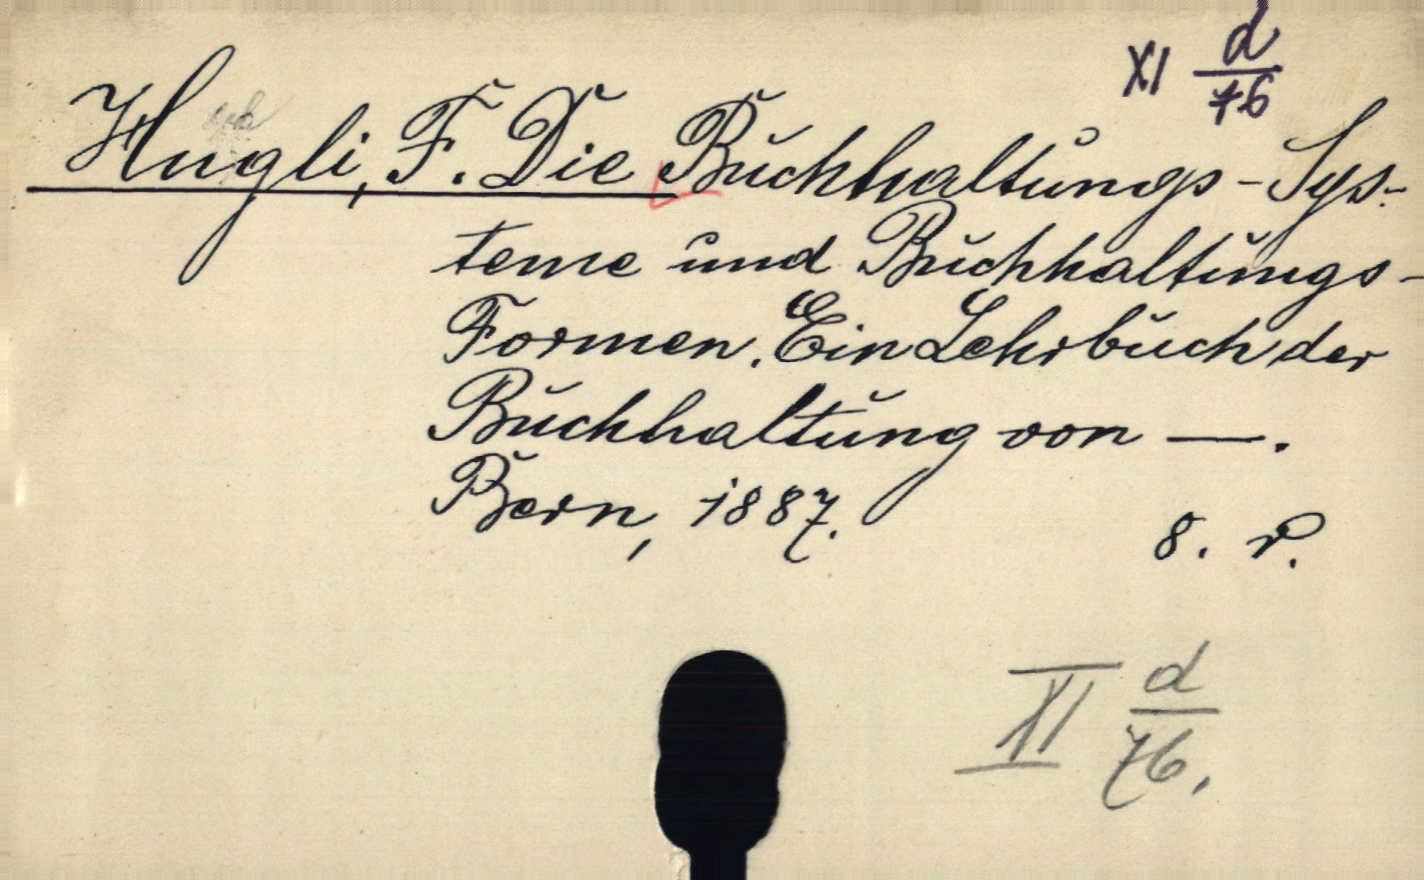 XI d/76
Hugli, F. Die Buchhaltungs-Sys-
teme und Buchhaltungs-
Formen. Ein Lehrbuch der
Buchhaltung von —.
Bern, 1887.
8. r.
XI d/76.